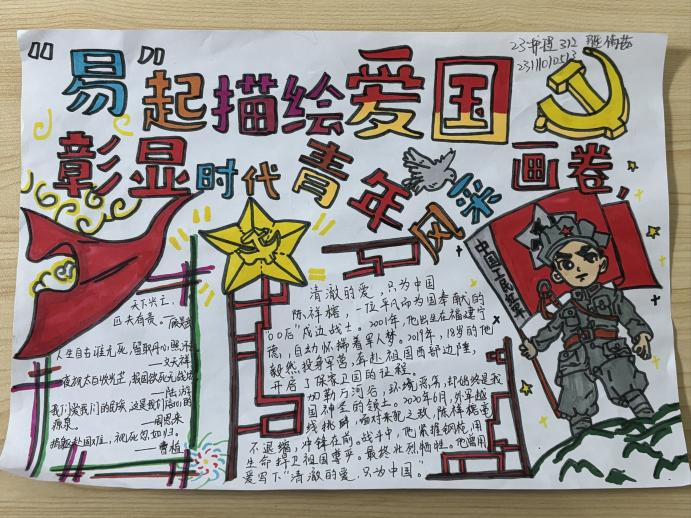 “易”起描绘爱国
彰显时代青年风采画卷,
天下兴亡,
匹夫有责。
人生自古谁无死,留取丹心照
——文天祥
——陆游
我们爱我们的民族,这是我们自信的
源泉。——周恩来
捐躯赴国难,视死忽如归。
——曹植
清澈的爱,只为中国
陈祥榕,一位平凡而为国奉献的
“00后”戍边战士。2001年,他出生在福建宁
德,自幼怀揣着军人梦。2019年,18岁的他
毅然投身军营,奔赴祖国西部边陲,
开启了保家卫国的征程。
加勒万河谷,环境恶劣,却始终是我
国神圣的领土。2020年6月,外军越
线挑衅,面对来犯之敌,陈祥榕毫
不退缩,冲锋在前。战斗中,他紧握钢枪,用
生命捍卫祖国尊严。最终壮烈牺牲。他曾用
爱写下“清澈的爱,只为中国。”
中国工农红军